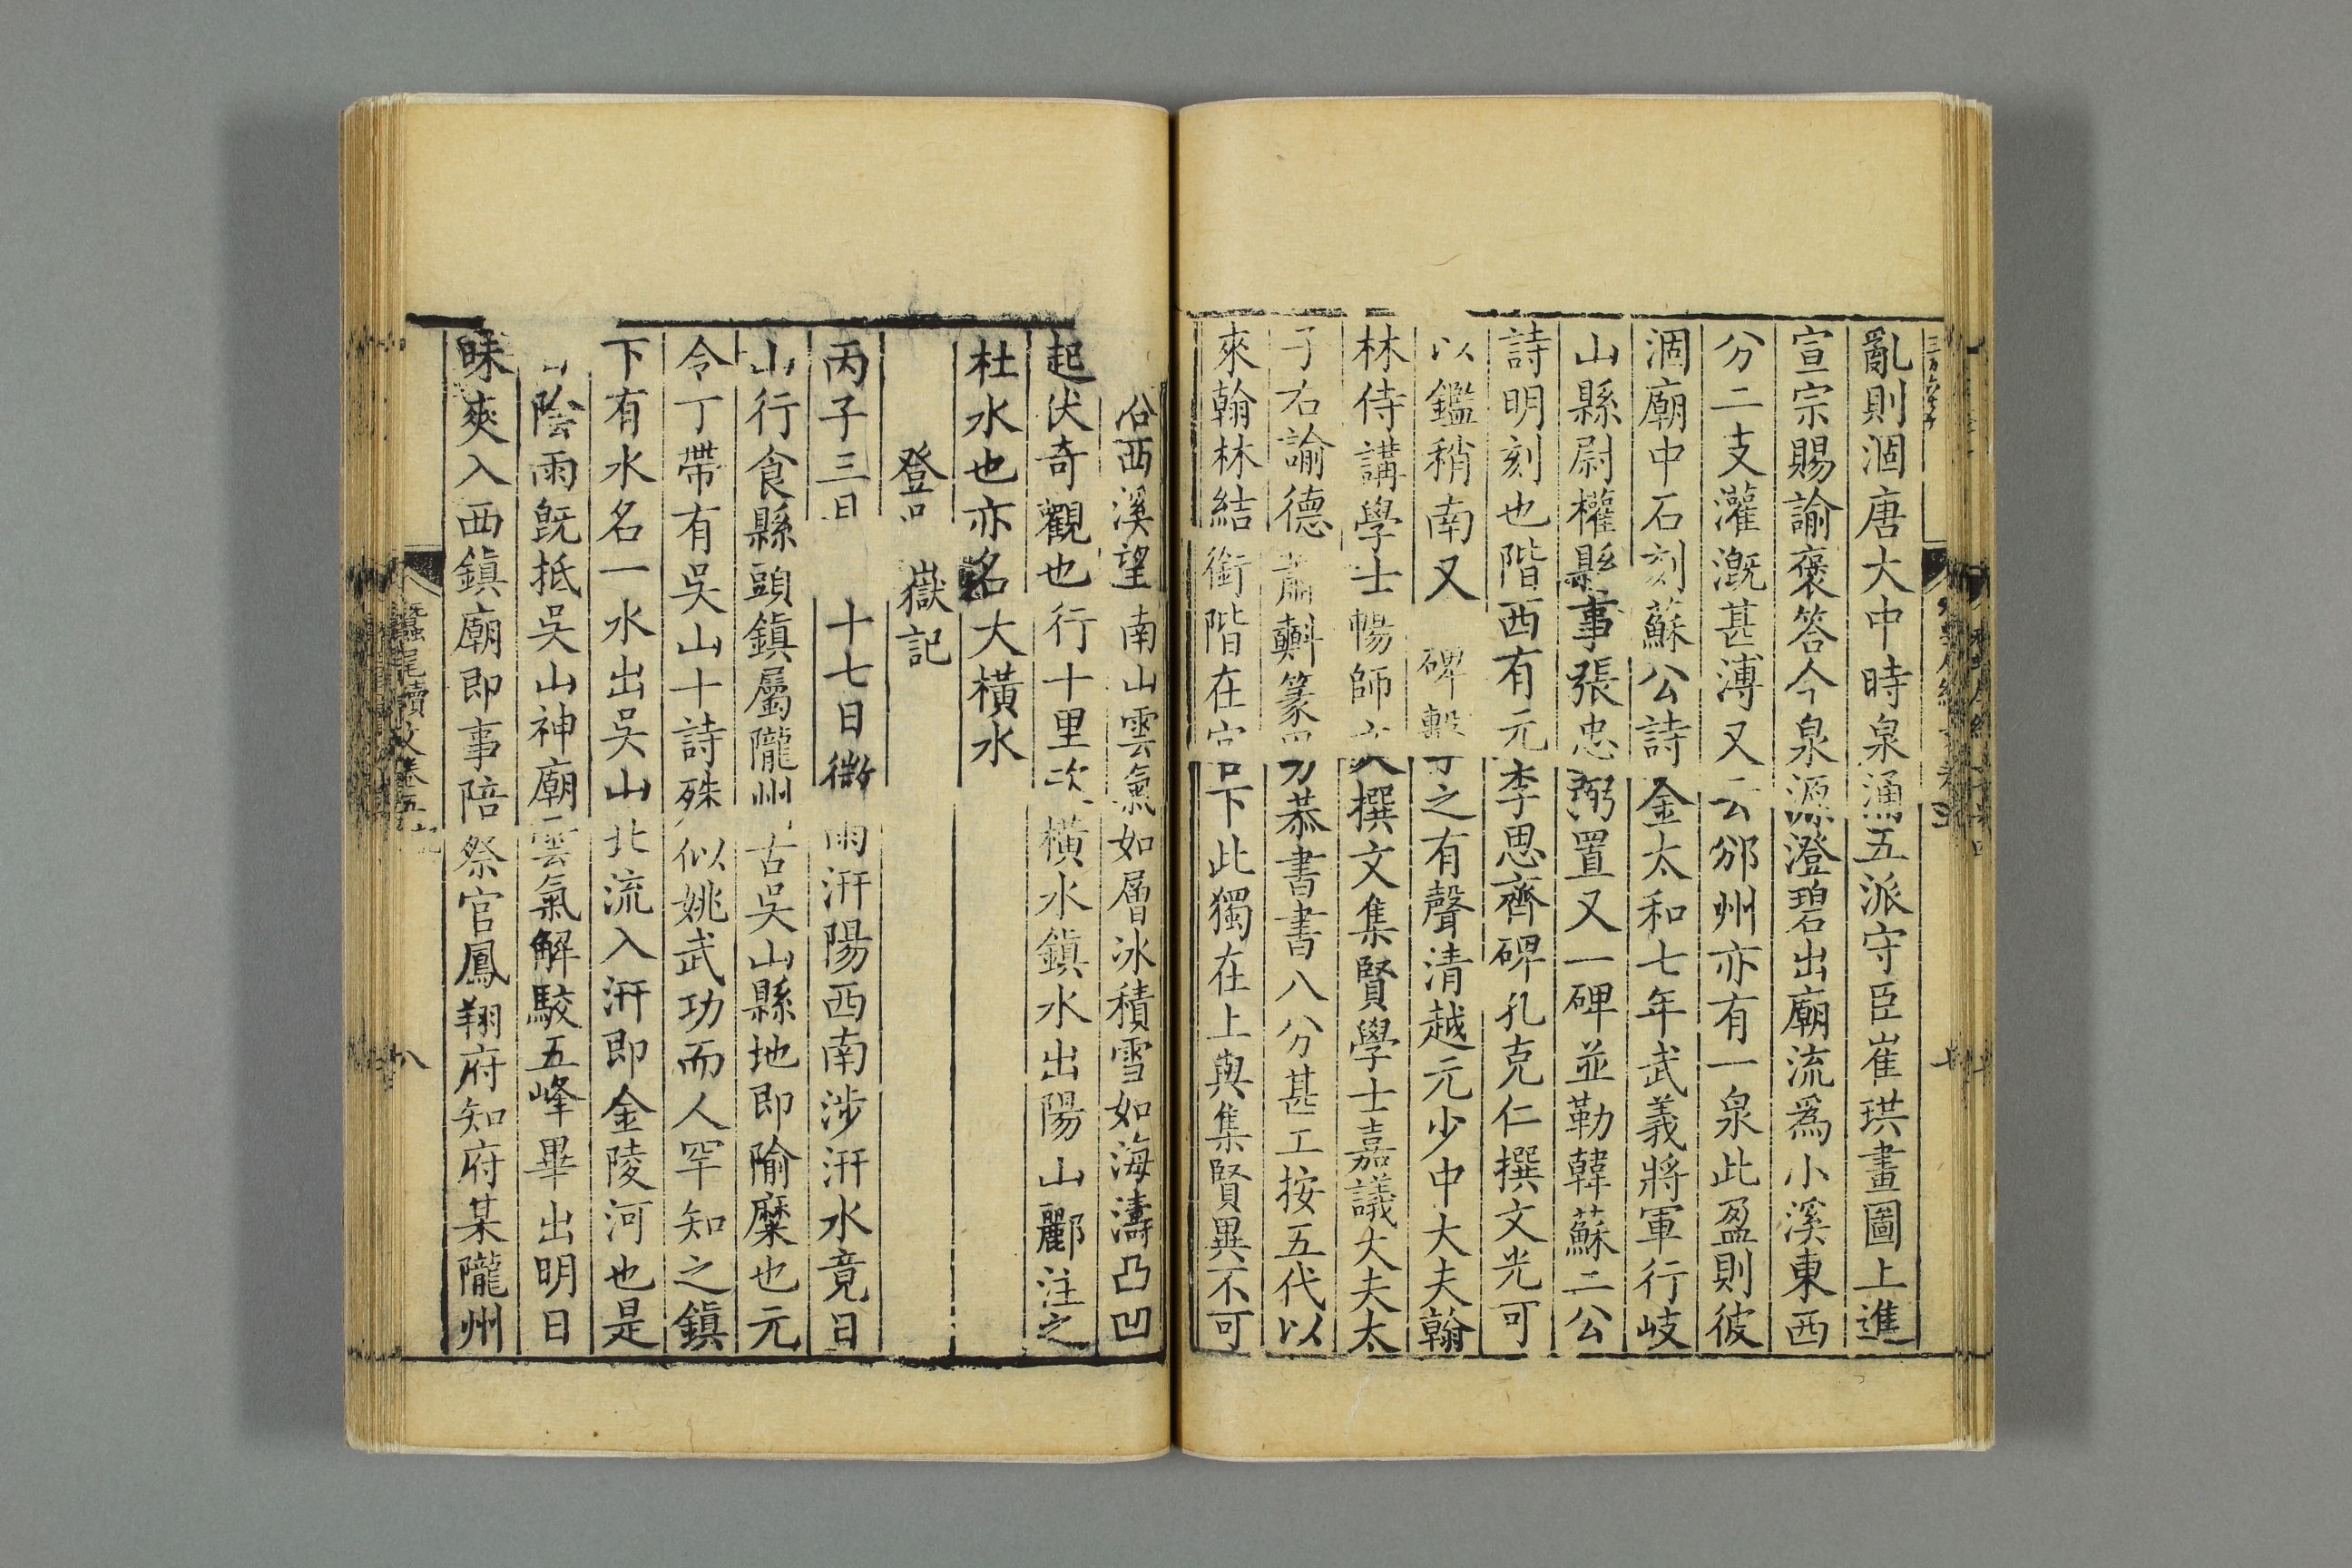 亂則涸唐大中時泉涌五派守臣崔珙畫圖上進
宣宗賜諭褒答今泉源澄碧出廟流爲小溪東西
分二支灌溉甚溥又云邠州亦有一泉此盈則彼
涸廟中石刻蘇公詩金太和七年武義將軍行岐
山縣尉權縣事張忠弼置又一碑並勒韓蘇二公
詩明刻也階西有元李思齊碑孔克仁撰文光可
以鑑稍南又碑擊之有聲清越元少中大夫翰
林侍講學士暢師文撰文集賢學士嘉議大夫太
子右諭德蕭𣂏篆恭書書八分甚工按五代以
來翰林結銜階在官下此獨在上與集賢異不可
沿西溪望南山雲氣如層冰積雪如海濤凸凹
起伏奇觀也行十里次橫水鎮水出陽山酈注之
杜水也亦名大橫水
登嶽記
丙子三月十七日微雨汧陽西南涉汧水竟日
山行食縣頭鎮屬隴州古吳山縣地即隃糜也元
令丁帶有吳山十詩殊似姚武功而人罕知之鎮
下有水名一水出吳山北流入汧即金陵河也是
日陰雨旣抵吳山神廟雲氣解駮五峰畢出明日
昧爽入西鎮廟即事陪祭官鳳翔府知府某隴州
蠶尾續文卷五
八